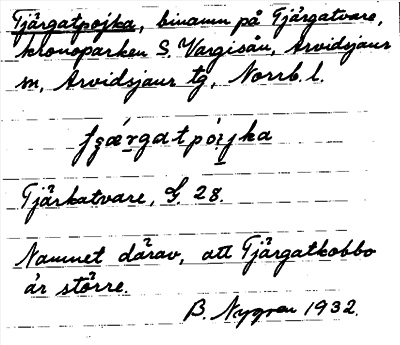 Tjärgatpojka, binamn på Tjärgatvare,
kronoparken S. Vargisån, Arvidsjaur
sn, Arvidsjaur tg, Norrb. l.
Tjärkatvare, G. 28.
Namnet därav, att Tjärgatkobbo
är större.
B. Nygren 1932.